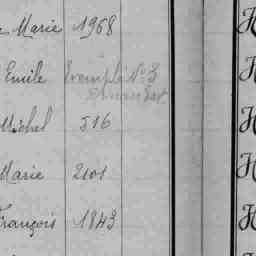 Marie 1968 H
Emile Exempté No 3 H
Michel 516 H
Marie 2101 H
François 1843 H